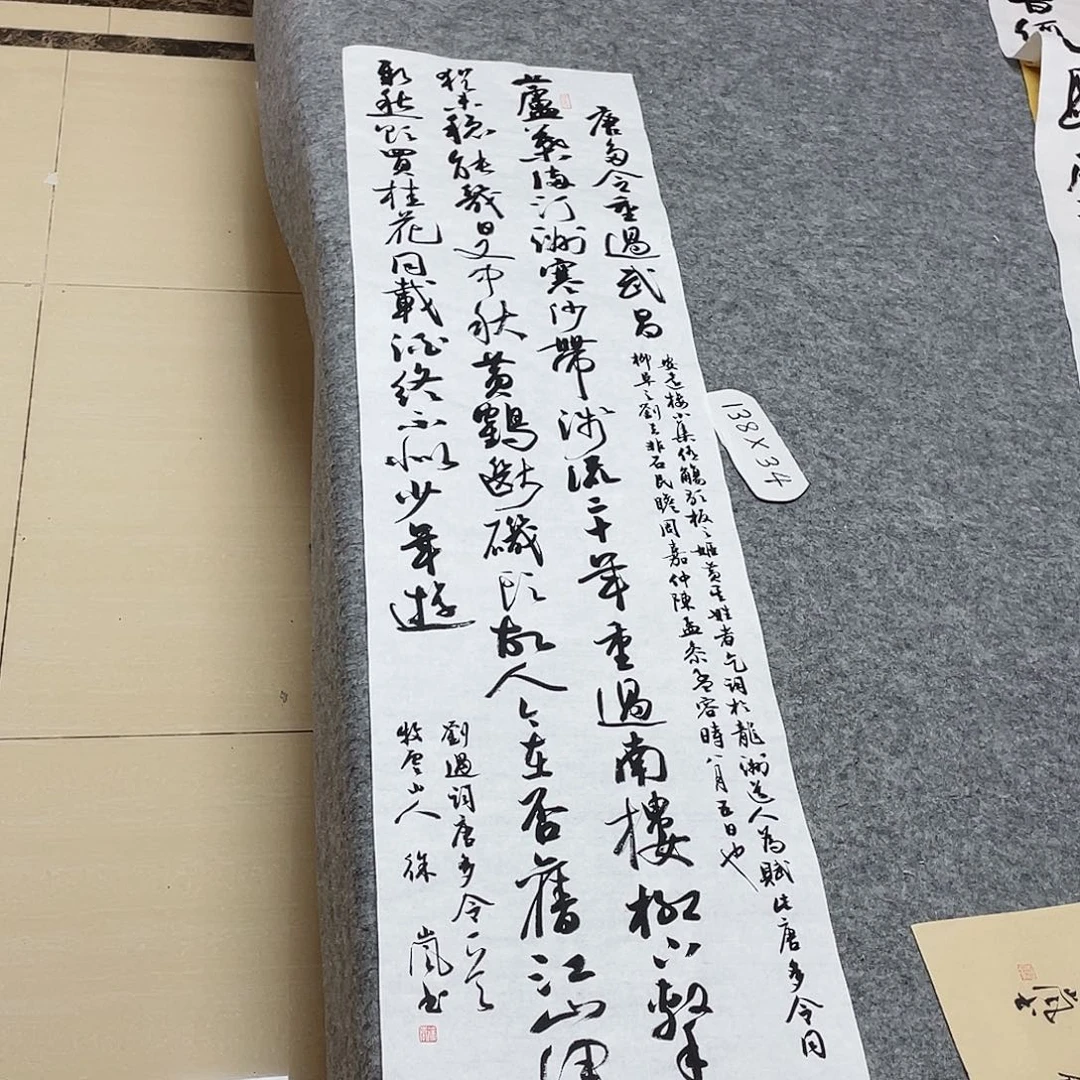 唐多令重過武昌
安遠樓小集侑觴歌板之姬黃其姓者乞詞於龍洲道人為賦此唐多令同
柳阜之劉去非石民瞻周嘉仲陳孟參孟容時八月五日也
蘆葉滿汀洲寒沙帶淺流二十年重過南樓柳下繫
猶未穩能幾日又中秋黃鶴斷磯頭故人今在否舊江山渾
新愁欲買桂花同載酒終不似少年遊
劉過詞唐多令一首
牧雲山人 徐嵐書
138×34